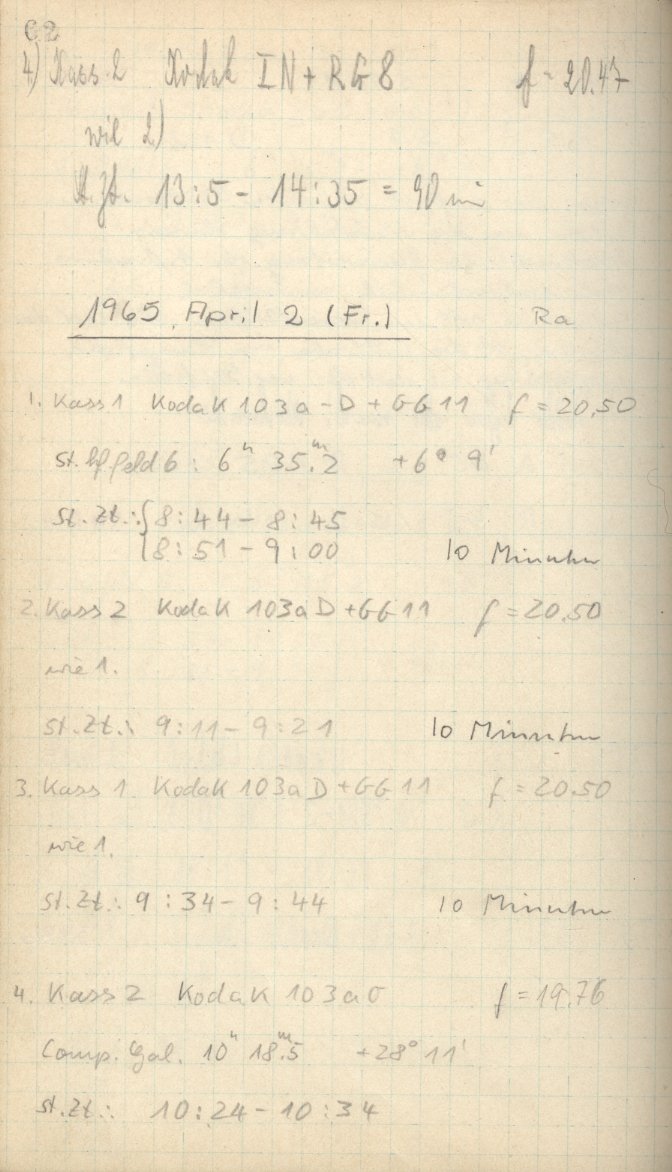 62
4) Kass. 2 Kodak IN + RG8 f = 20.47
wie 2)
St.Zt. 13:5 - 14:35 = 90 min
1965 April 2 (Fr.) Ra
1. Kass 1 Kodak 103a-D + GG11 f = 20,50
feld 6 : 6h 35m.2 +6° 9'
St. Zt.: { 8:44 - 8:45
8:51 - 9:00 10 Minuten
2. Kass 2 Kodak 103a D + GG11 f = 20.50
wie 1.
St. Zt.: 9:11 - 9:21 10 Minuten
3. Kass 1 Kodak 103a D + GG11 f = 20.50
wie 1.
St. Zt.: 9:34 - 9:44 10 Minuten
4. Kass 2 Kodak 103a O f = 19.76
Comp. Gal. 10h 18m.5 +28° 11'
St. Zt.: 10:24 - 10:34